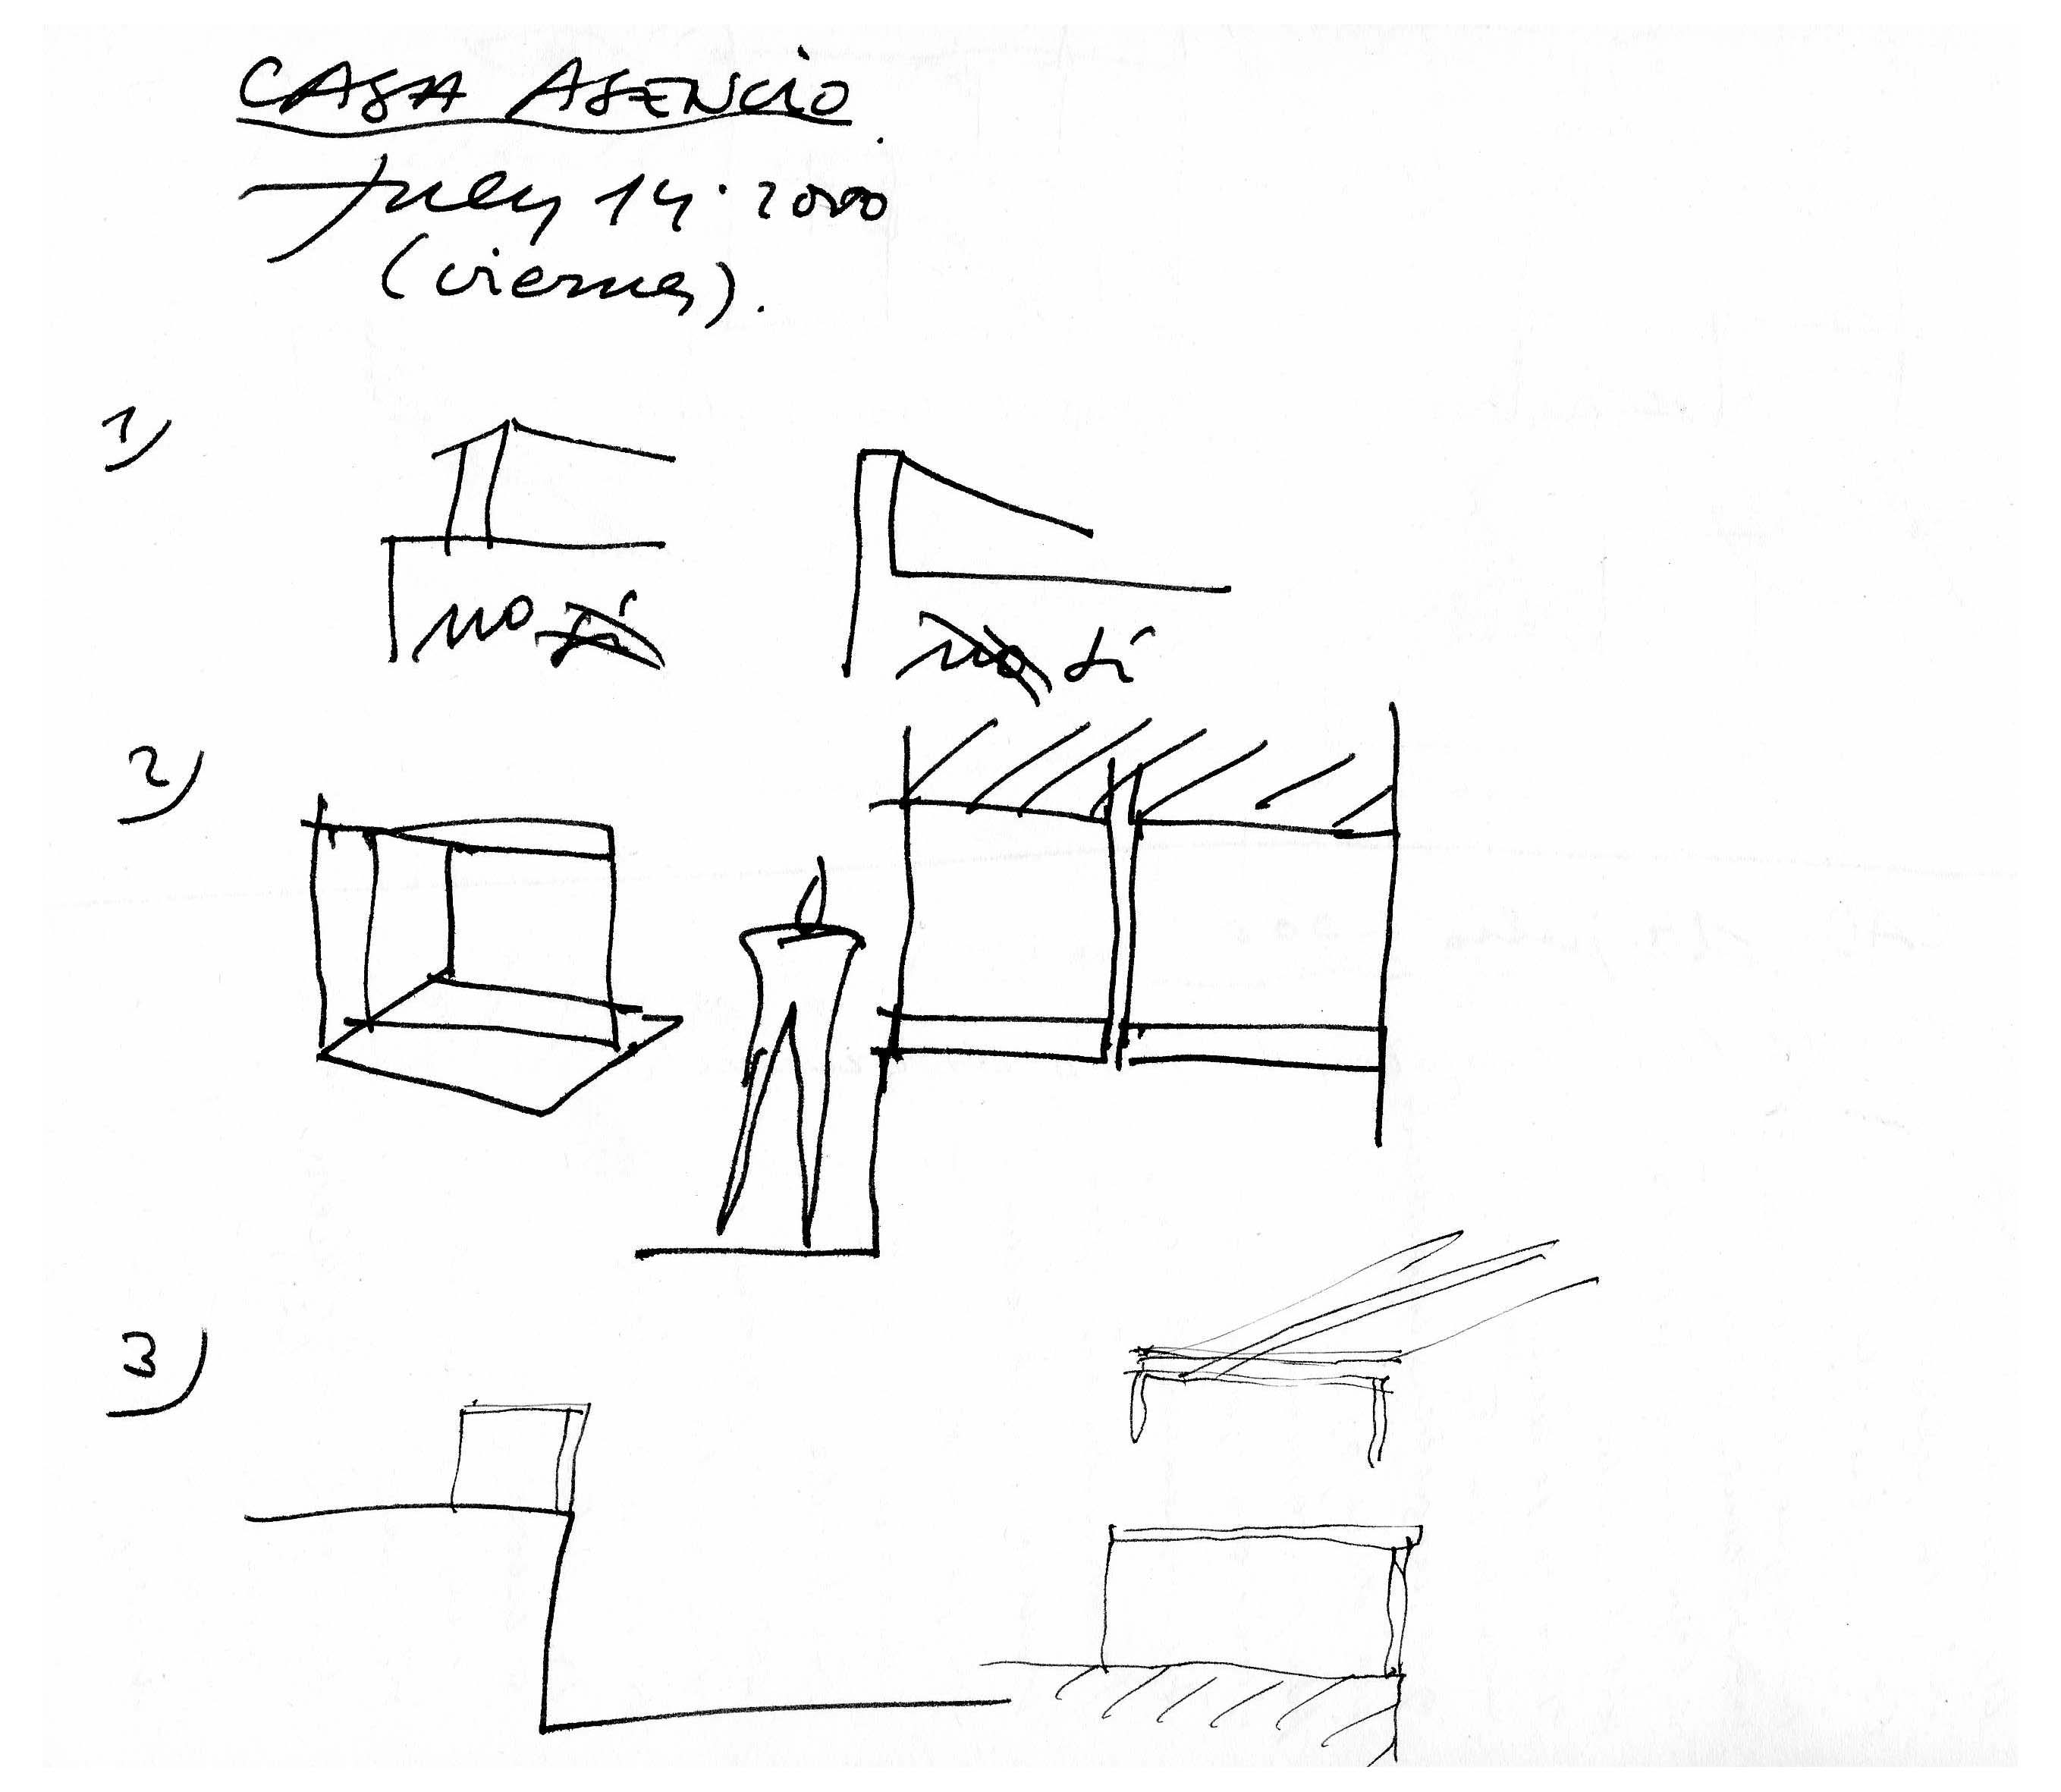 CASA ASENCIO.
July 14·2000
(viernes).
1)
no sí
no sí
2)
3)